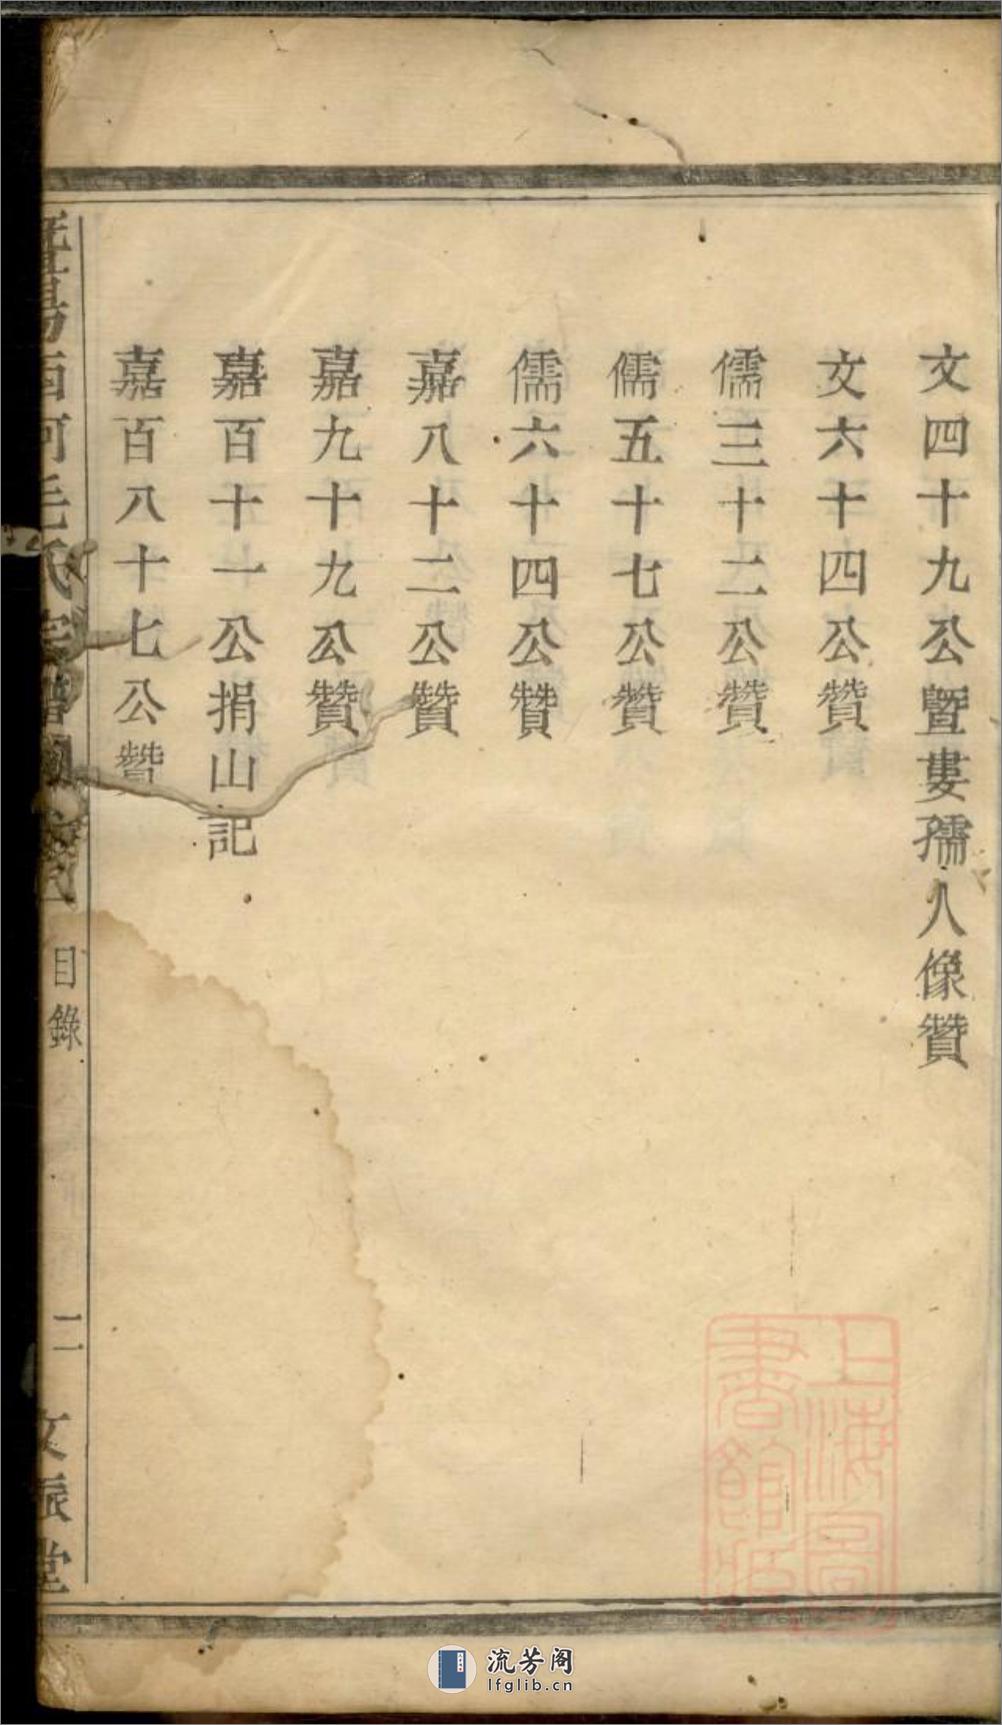 文四十九公暨婁孺人像贊
文六十四公贊
儒三十二公贊
儒五十七公贊
儒六十四公贊
嘉八十二公贊
嘉九十九公贊
嘉百十一公捐山記
嘉百八十七公贊
暨陽西河毛氏宗譜
目錄
二
文振堂
上海圖
書館
流芳阁
lfglib.cn